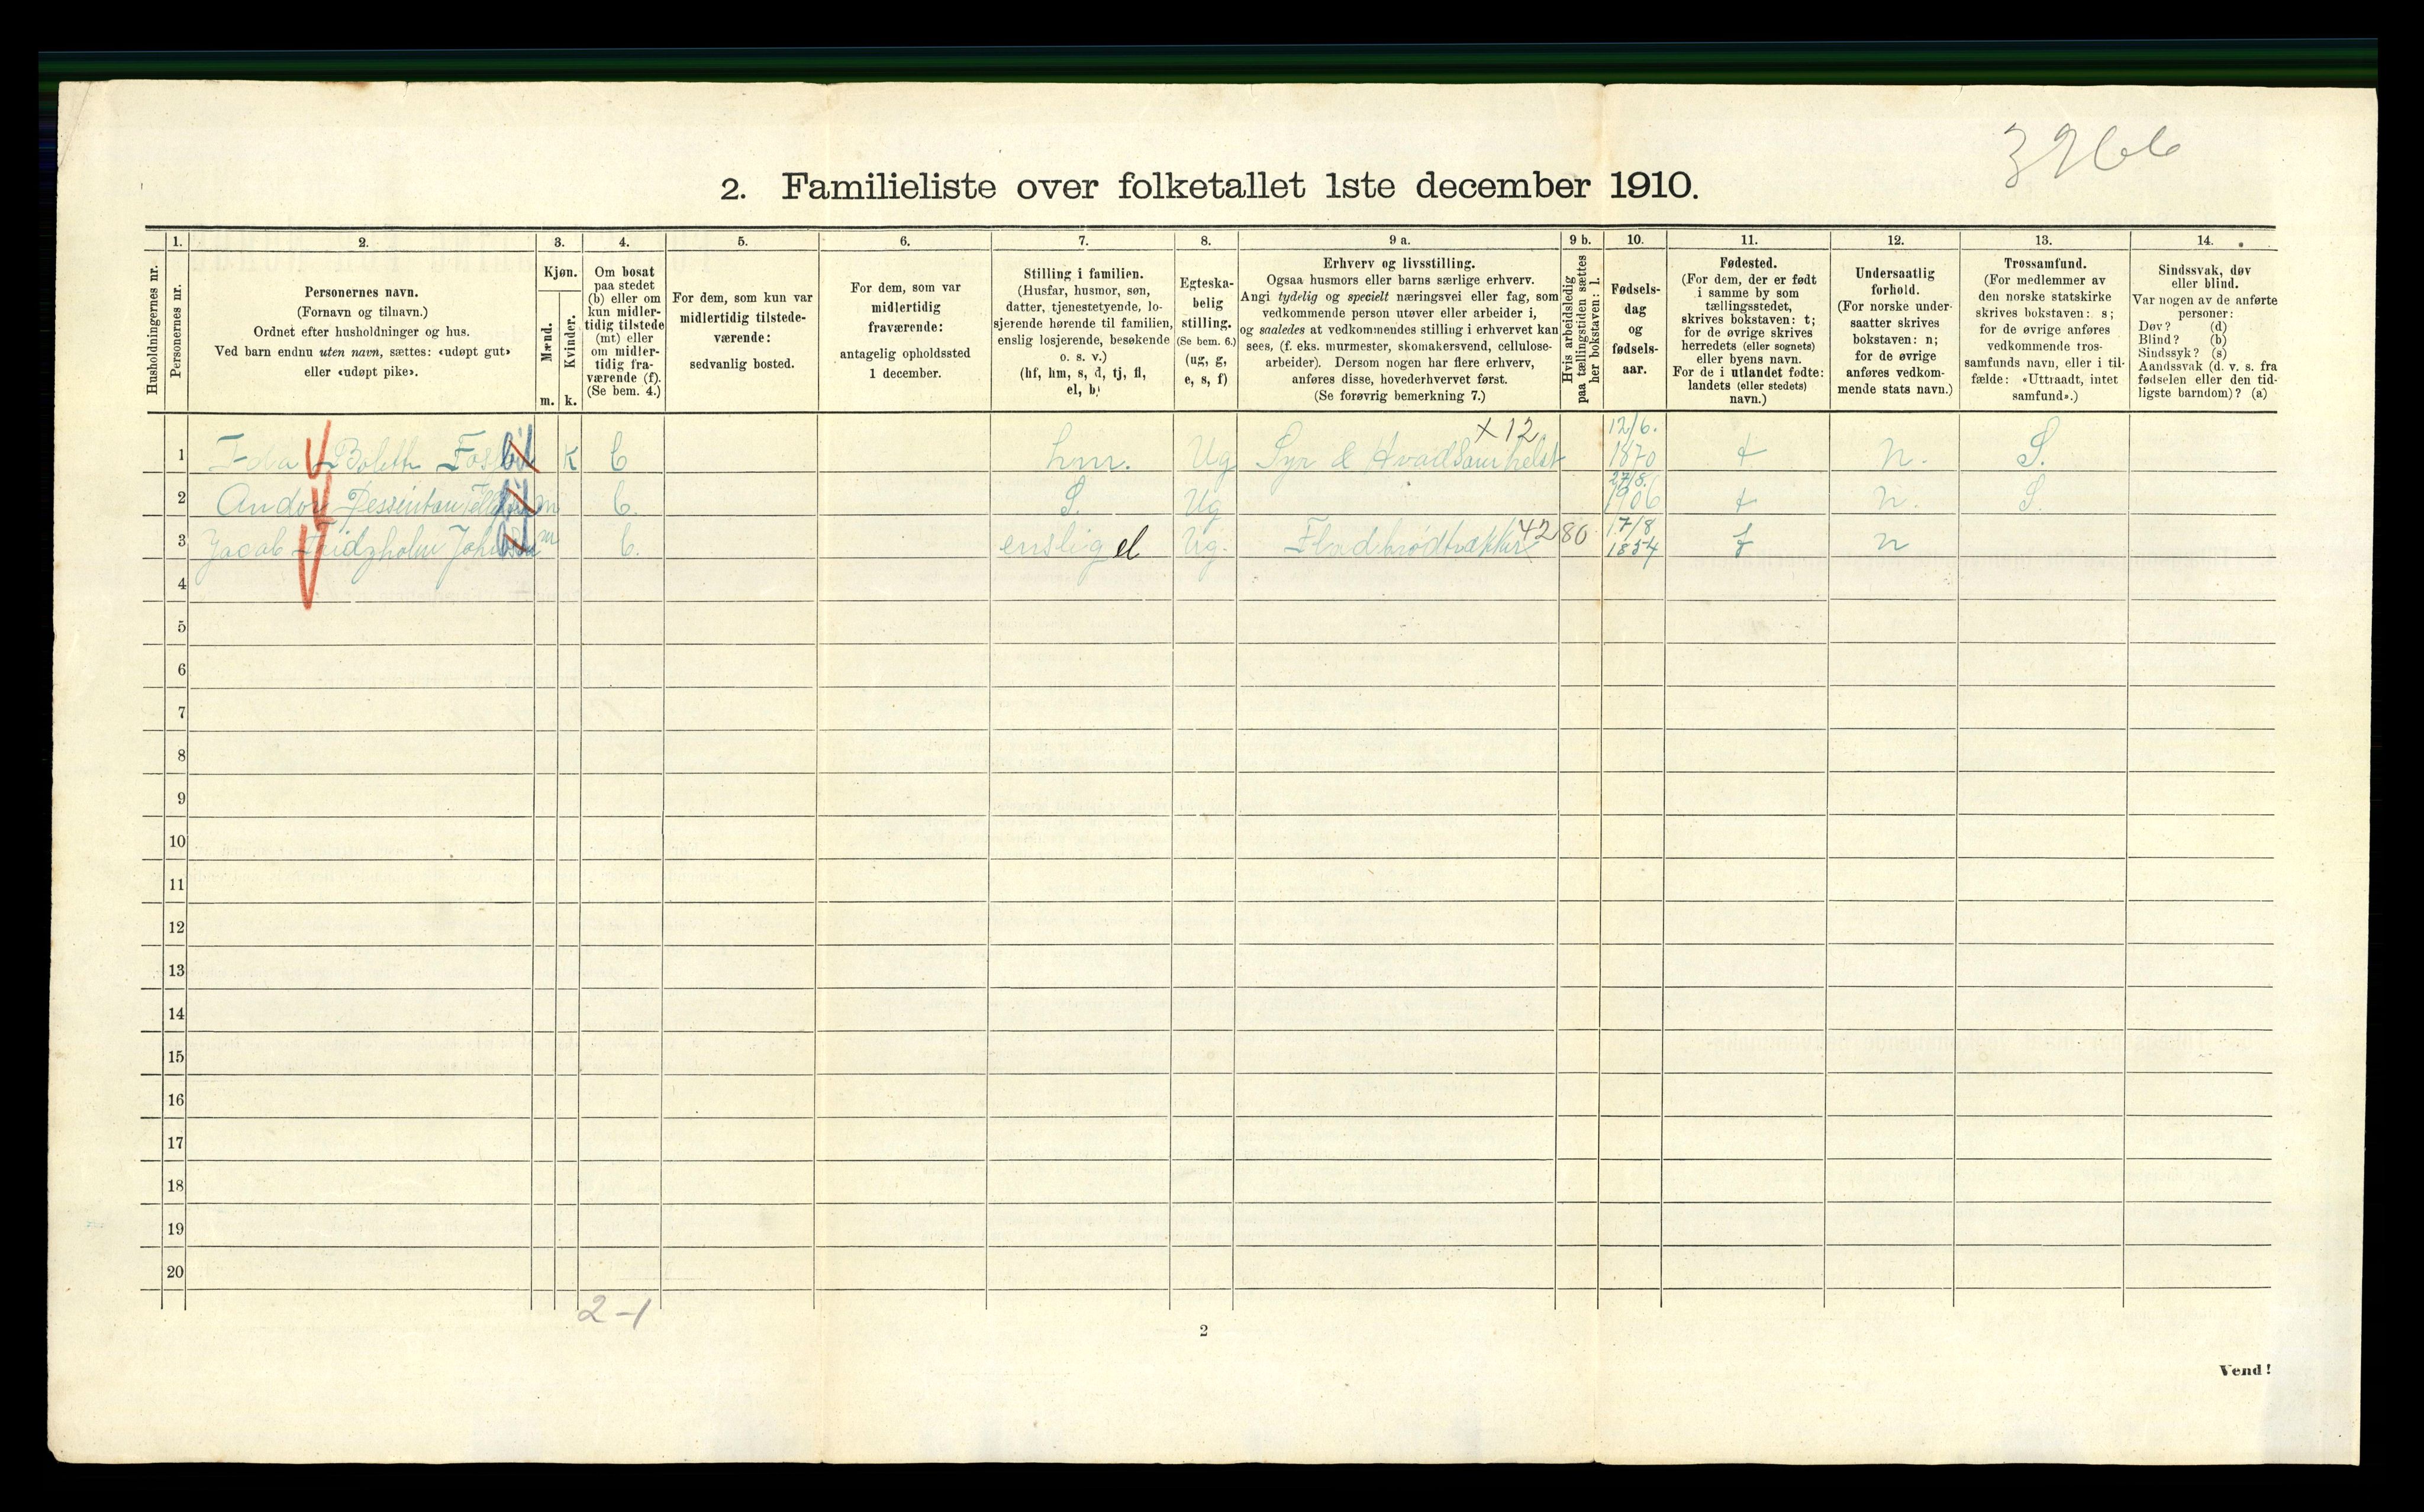 3966
2. Familieliste over folketallet 1ste december 1910.
Husholdningernes nr.
1.
Personernes nr.
2.
Personernes navn.
(Fornavn og tilnavn.)
Ordnet efter husholdninger og hus.
Ved barn endnu uten navn, sættes: «udøpt gut»
eller «udøpt pike».
3.
Kjøn.
Mænd.
Kvinder.
m. k.
4.
Om bosat
paa stedet
(b) eller om
kun midler-
tidig tilstede
(mt) eller
om midler-
tidig fra-
værende (f).
(Se bem. 4.)
5.
For dem, som kun var
midlertidig tilstede-
værende:
sedvanlig bosted.
6.
For dem, som var
midlertidig
fraværende:
antagelig opholdssted
1 december.
7.
Stilling i familien.
(Husfar, husmor, søn,
datter, tjenestetyende, lo-
sjerende hørende til familien,
enslig losjerende, besøkende
o. s. v.)
(hf, hm, s, d, tj, fl,
el, b)
8.
Egteska-
belig
stilling.
(Se bem. 6.)
(ug, g,
e, s, f)
9 a.
Erhverv og livsstilling.
Ogsaa husmors eller barns særlige erhverv.
Angi tydelig og specielt næringsvei eller fag, som
vedkommende person utøver eller arbeider i,
og saaledes at vedkommendes stilling i erhvervet kan
sees, (f. eks. murmester, skomakersvend, cellulose-
arbeider). Dersom nogen har flere erhverv,
anføres disse, hovederhvervet først.
(Se forøvrig bemerkning 7.)
9 b.
Hvis arbeidsledig
paa tællingstiden sættes
her bokstaven: l.
10.
Fødsels-
dag
og
fødsels-
aar.
11.
Fødested.
(For dem, der er født
i samme by som
tællingsstedet,
skrives bokstaven: t;
for de øvrige skrives
herredets (eller sognets)
eller byens navn.
For de i utlandet fødte:
landets (eller stedets)
navn.)
12.
Undersaatlig
forhold.
(For norske under-
saatter skrives
bokstaven: n;
for de øvrige
anføres vedkom-
mende stats navn.)
13.
Trossamfund.
(For medlemmer av
den norske statskirke
skrives bokstaven: s;
for de øvrige anføres
vedkommende tros-
samfunds navn, eller i til-
fælde: «Uttraadt, intet
samfund».)
14.
Sindssvak, døv
eller blind.
Var nogen av de anførte
personer:
Døv? (d)
Blind? (b)
Sindssyk? (s)
Aandssvak (d. v. s. fra
fødselen eller den tid-
ligste barndom)? (a)
1 Boleth k b hm. Ug Syr & Hvadsomhelst x 12 12/6. 1870 t n. S.
2 Andor m b. S. Ug 1906 t n. S.
3 Jacob m b. enslig el Ug. 4280 17/8 1854 t n
4
5
6
7
8
9
10
11
12
13
14
15
16
17
18
19
20
2-1
2
Vend!